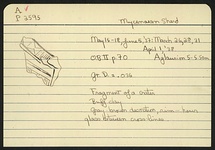 A
P 2595
Mycenaean Sherd
May 16-18, June 4, '37; March 26, 28, 31
April 1, '38
OB II p. 70
Aglaurion S-Sem
Gr. D. 2.056
Fragment of a crater
Buff clay
Gray-brown decoration, - hours
between cross lines